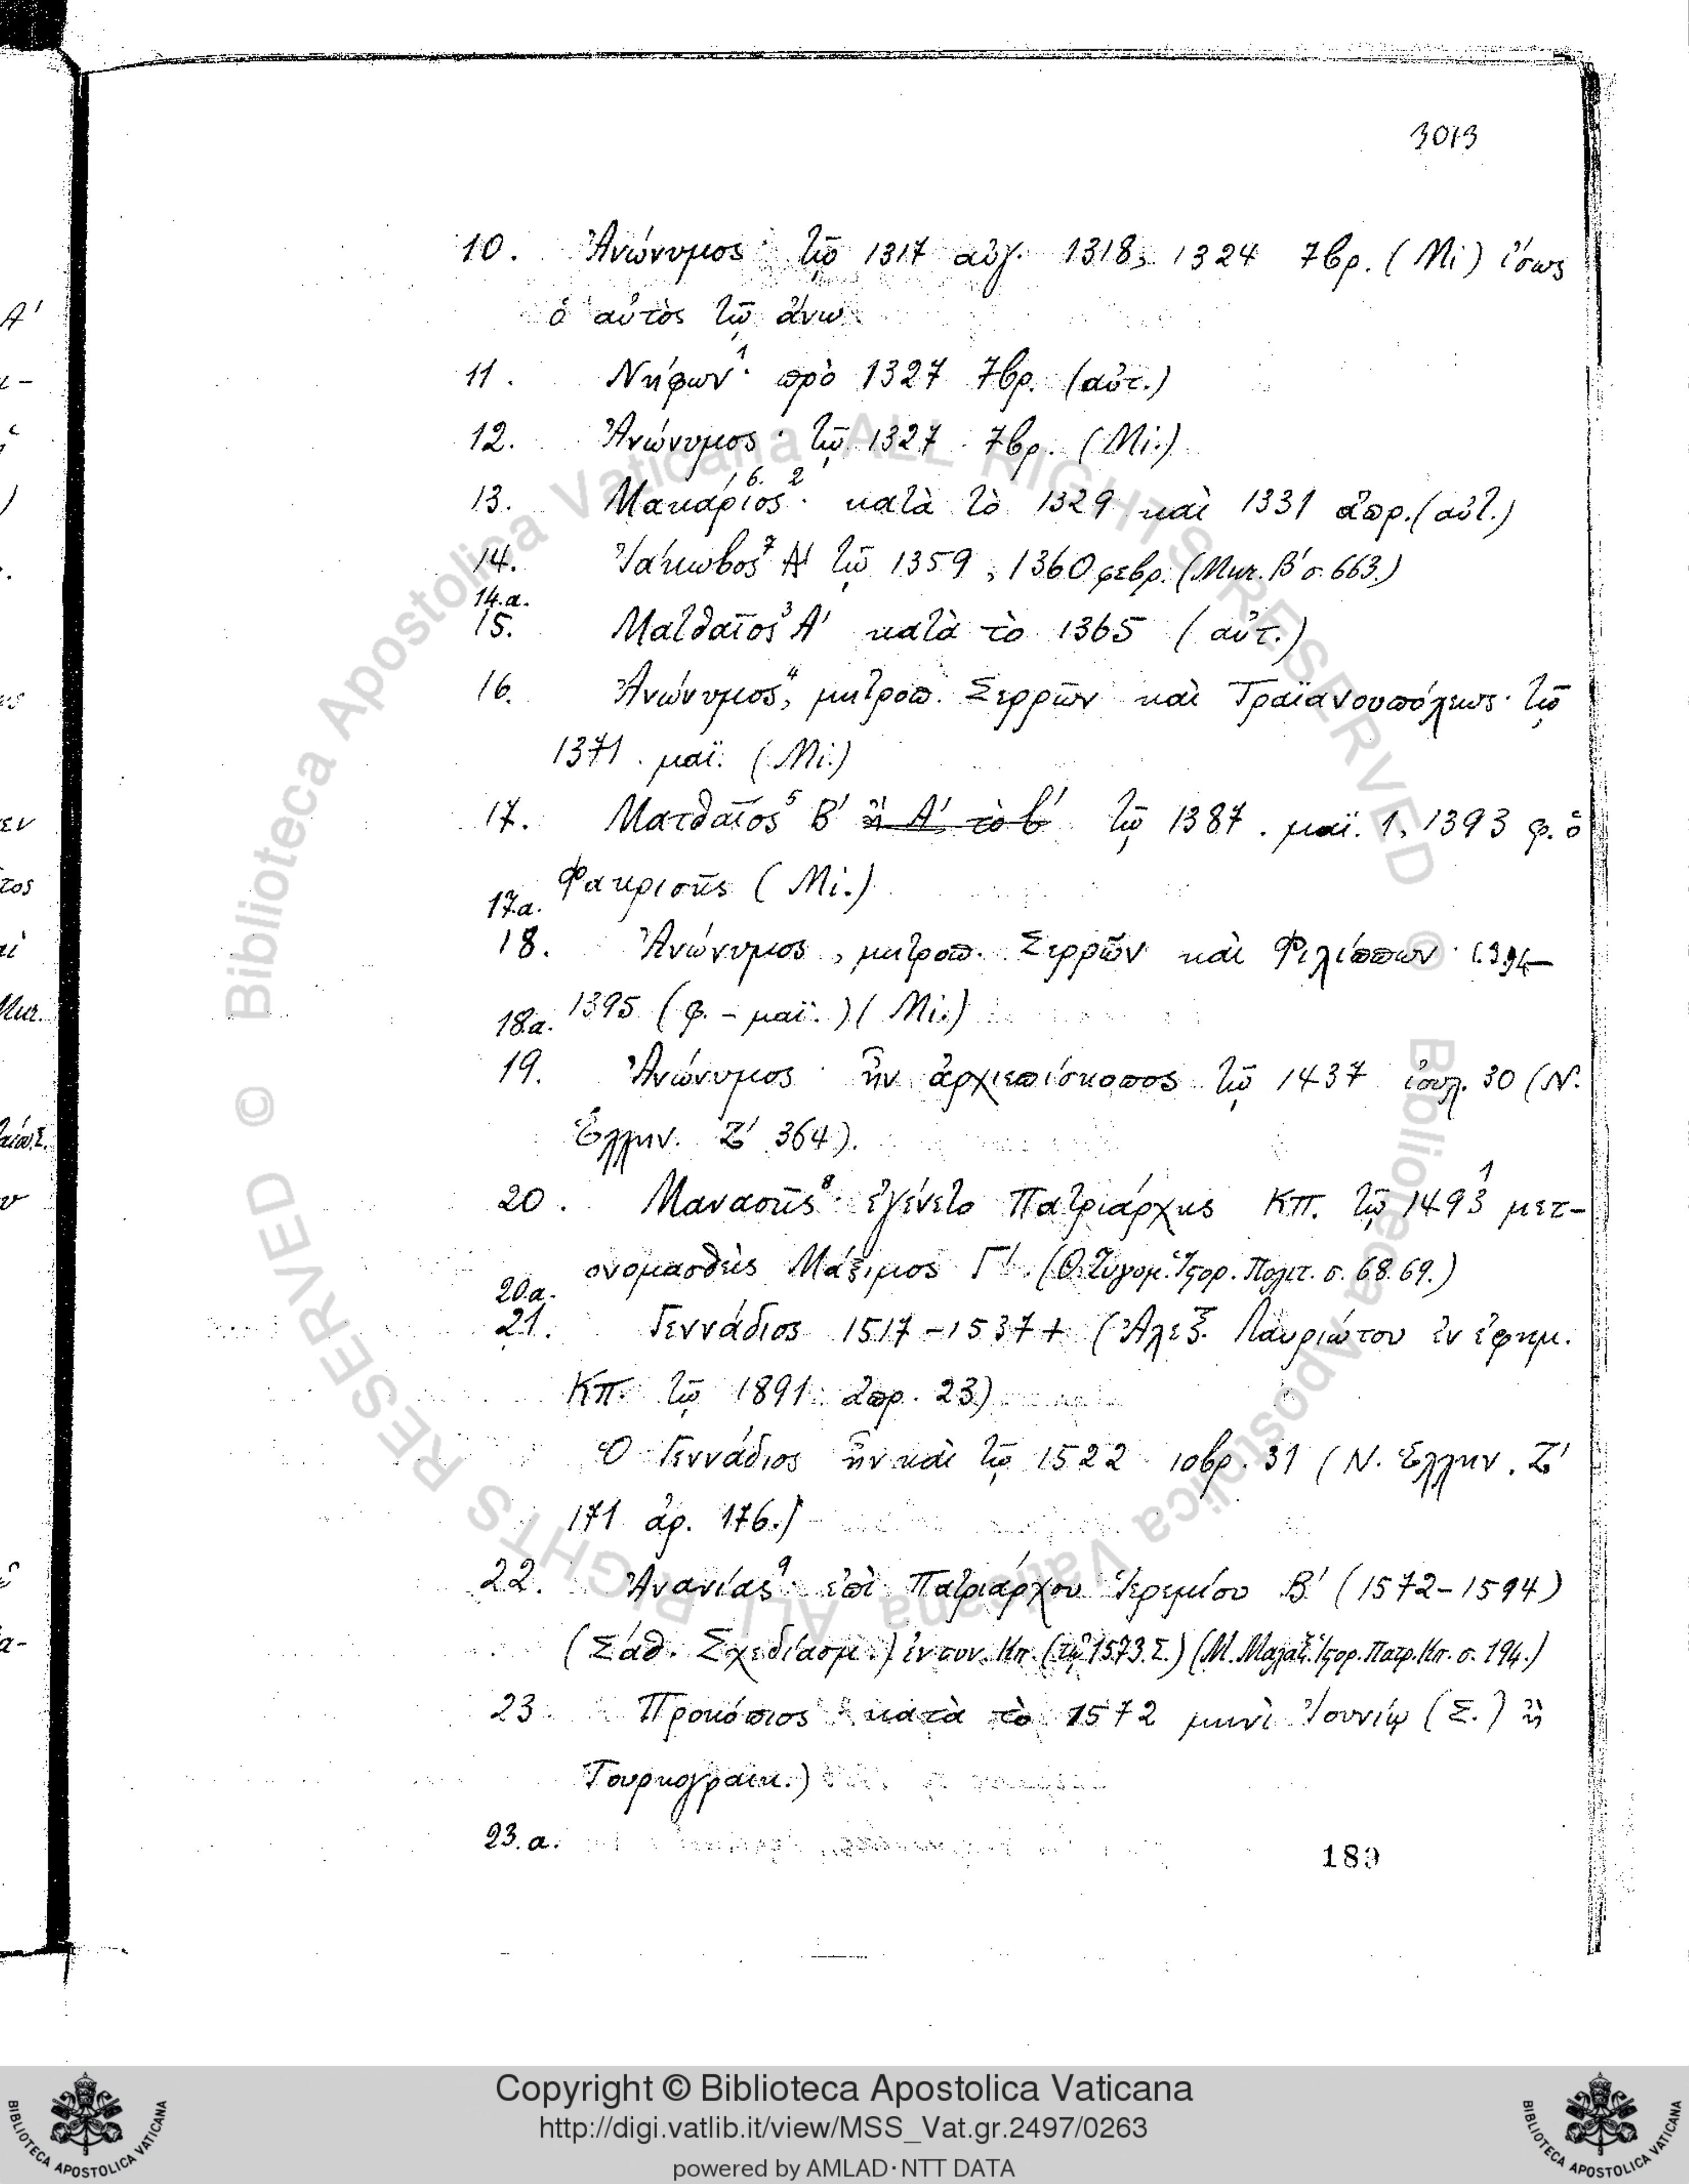 3013
10. Ἀνώνυμος· τῷ 1317 αὐγ. 1318, 1324 7βρ. (Mi) ἴσως
ὁ αὐτὸς τῷ ἄνω.
11. Νήφων¹· πρὸ 1327 7βρ. (αὐτ.)
12. Ἀνώνυμος· τῷ 1327 7βρ. (Mi.)
13. Μακάριος⁶·²· κατὰ τὸ 1329 καὶ 1331 ἀπρ. (αὐτ.)
14. Ἰάκωβος⁷ Α' τῷ 1359, 1360 φεβρ. (Μικ. Β' σ. 663.)
14.α.
15. Ματθαῖος³ Α' κατὰ τὸ 1365 (αὐτ.)
16. Ἀνώνυμος⁴, μητροπ. Σερρῶν καὶ Τραϊανουπόλεως· τῷ
1371. μαΐ. (Mi.)
17. Ματθαῖος⁵ Β' ἢ Α' τὸ β' τῷ 1387. μαΐ. 1, 1393 φ. ὁ
Φακρισῆς (Mi.)
17.α.
18. Ἀνώνυμος, μητροπ. Σερρῶν καὶ Φιλίππων· 1394–
1395 (φ. – μαΐ.) (Mi.)
18.α.
19. Ἀνώνυμος· ἦν ἀρχιεπίσκοπος τῷ 1437 ἰουλ. 30 (Ν.
Ἑλλην. Ζ' 364).
20. Μανασῆς⁸· ἐγένετο Πατριάρχης ΚΠ. τῷ 1491 μετ-
ονομασθεὶς Μάξιμος Γ'. (Θ. Ζυγομ. Ἱστορ. Πολιτ. σ. 68. 69.)
20.α.
21. Γεννάδιος 1517–1537 + (Ἀλεξ. Λαυριώτου ἐν ἐφημ.
ΚΠ. τῷ 1891. ἀπρ. 23)
Ὁ Γεννάδιος ἦν καὶ τῷ 1522 ιοβρ. 31 (Ν. Ἑλλην. Ζ'
171 ἀρ. 176.)
22. Ἀνανίας⁹· ἐπὶ Πατριάρχου Ἱερεμίου Β' (1572–1594)
(Σάθ. Σχεδίασμ.) ἐν συν. Κπ. (τῷ 1573. Σ.) (Μ. Μαλαξ. Ἱστορ. Πατρ. Κπ. σ. 194.)
23. Προκόπιος· κατὰ τὸ 1572 μηνὶ Ἰουνίῳ (Σ.) ἢ
Τουρκογραικ.)
23.α.
189
Copyright © Biblioteca Apostolica Vaticana
http://digi.vatlib.it/view/MSS_Vat.gr.2497/0263
powered by AMLAD·NTT DATA